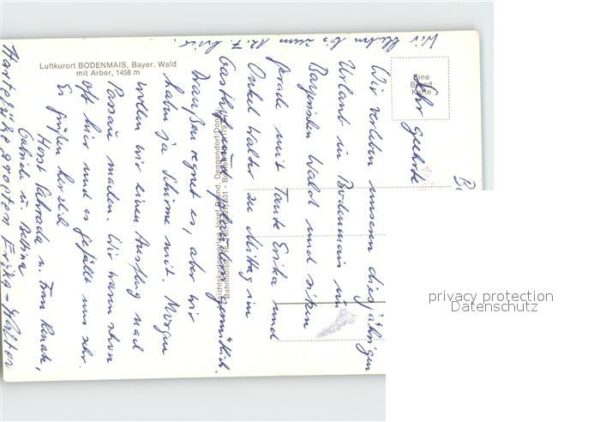 Luftkurort BODENMAIS, Bayer. Wald
mit Arber, 1458 m
Sehr geehrte
Wir verleben unseren diesjährigen
Urlaub in Bodenmais im
Bayrischen Wald und sitzen
gerade mit Tante Erika und
Onkel Walter zu Mittag im
Gasthof und plaudern gemütlich.
Draußen regnet es, aber wir
haben ja Schirme mit. Morgen
wollen wir einen Ausflug nach
Passau machen. Wir waren schon
oft hier und es gefällt uns sehr.
Es grüßen herzlich
Horst u. Frau Renate,
Gabriele u. Bettina
Herzliche Grüße Erika + Walter
Wir bleiben bis zum 12.7. hier.
privacy protection
Datenschutz